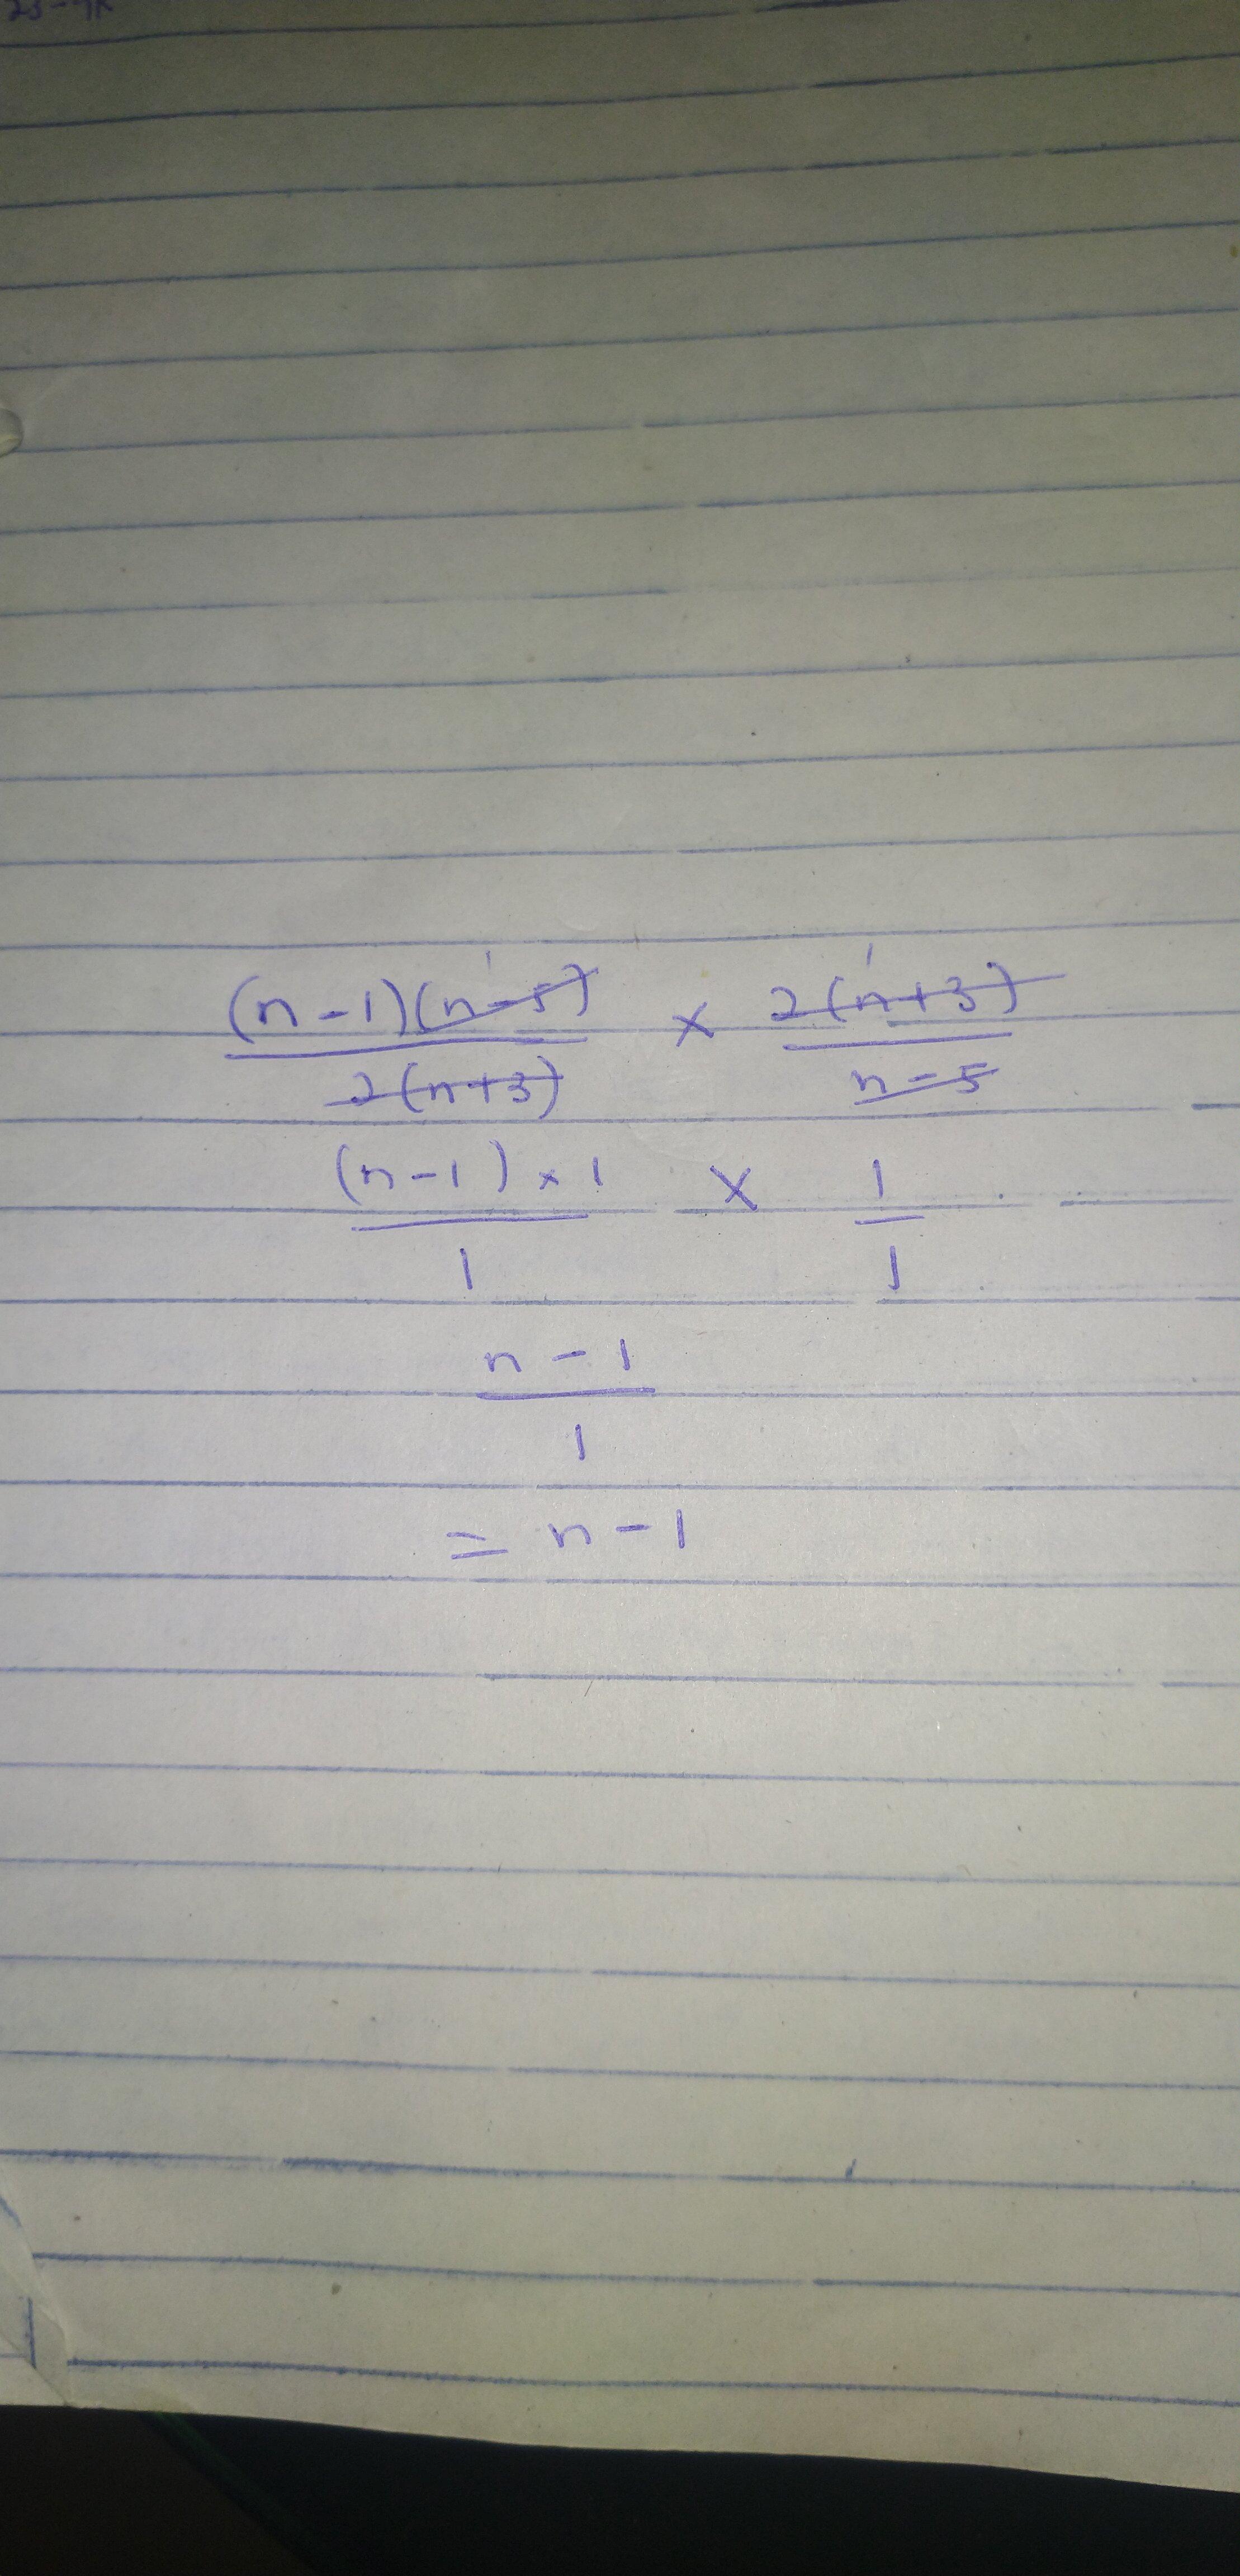 (n-1)(n-5) × 2(n+3)
2(n+3) n-5
(n-1) × 1 × 1
1 1
n - 1
1
= n - 1